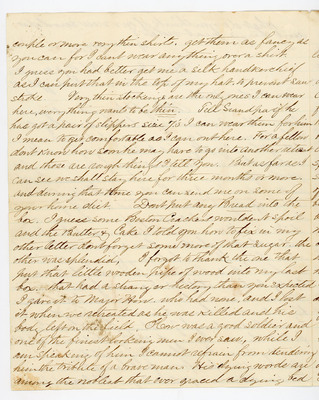 couple or more very thin shirts. get them as fancy as
you can for I dont wear anything over a shirt
I guess you had better get me a silk handkerchief
as I can put that in the top of my hat & prevent sun
stroke. Very thin stockings are the only ones I can wear
here, everything wants to be thin. Tell Grandpa if he
has got a pair of slippers size 7½ I can wear them for him
I mean to get comfortable as I can out here. For a fellow
dont know how soon he may have to go into another
and those are rough things I tell you. But as far as I
can see we shall stay here for three months or more
and during that time you can send me on some of
your home diet. Dont put any Bread into the
box. I guess some Boston Crackers wouldent spoil
and the Butter, & Cake I told you how to fix in my
other letter dont forget some more of that sugar. the
other was splendid, I forgot to thank the one that
put that little wooden pipe of wood into my last
box. that had a strange history, than you expected
I gave it to Major How who had none, and I lost
it when we retreated as he was killed and his
body left on the field. How was a good soldier and
one of the finest looking men I ever saw, while I
am speaking of him I cannot refrain from
him the tribute of a brave man. His dying words are
among the noblest that ever graced a dying bed